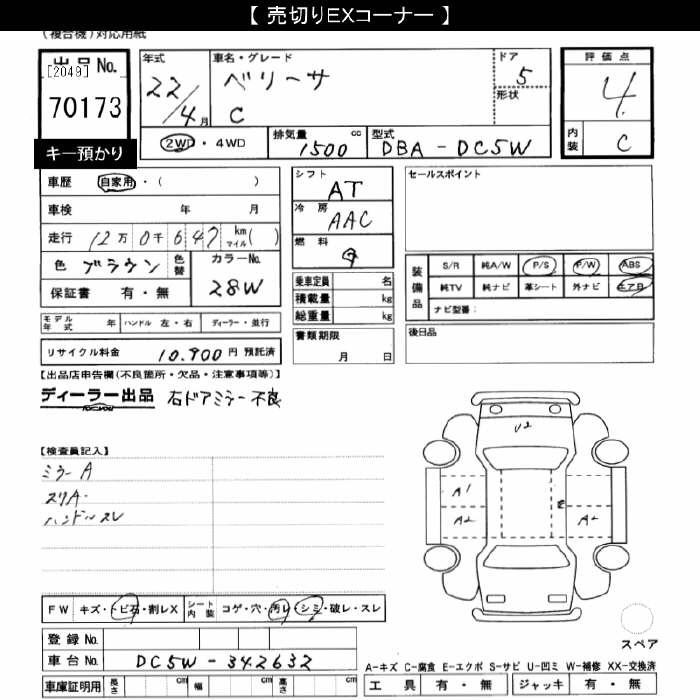 【 売切りEXコーナー 】
(複合機)対応用紙
出品No.
[2049]
70173
キー預かり
年式 22/4月
車名・グレード ベリーサ C
ドア 5
形状
評価点 4
内装 C
2WD・4WD 排気量 1500 cc 型式 DBA-DC5W
車歴 自家用・( )
車検 年 月
走行 12万0千647 km マイル( )
色 ブラウン 色替 カラーNo. 28W
保証書 有・無
シフト AT
冷房 AAC
燃料
乗車定員 名
積載量 kg
総重量 kg
セールスポイント
装備品 S/R 純A/W P/S P/W ABS
純TV 純ナビ 革シート 外ナビ エアB
ナビ型番:
モデル年式 年 ハンドル 左・右 ディーラー・並行
リサイクル料金 10,900円 預託済
書類期限 月 日
後日品
【出品店申告欄(不良箇所・欠品・注意事項等)】
ディーラー出品 右ドアミラー不良
【検査員記入】
ミラーA
スリA
ハンドルスレ
U2
A1
A2
E
A2
FW キズ・トビ石・割レX シート内装 コゲ・穴・汚レ・シミ・破レ・スレ
スペア
登録No.
車台No. DC5W-342632
A-キズ C-腐食 E-エクボ S-サビ U-凹ミ W-補修 XX-交換済
車庫証明用 長さ cm 幅 cm 高さ cm
工具 有・無 ジャッキ 有・無